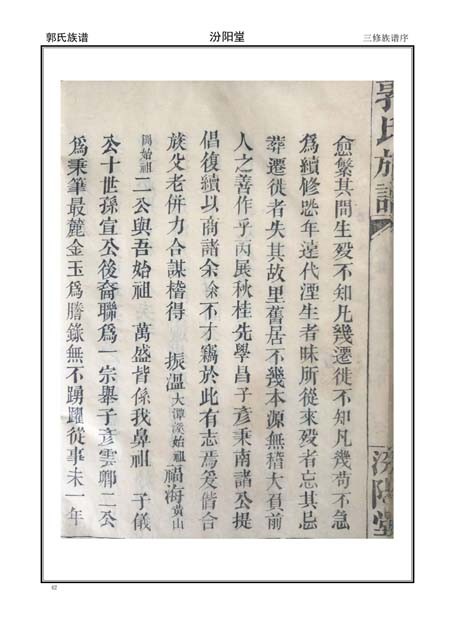 郭氏族谱
汾阳堂
三修族谱序
郭氏族譜
汾陽堂
愈繁其間生歿不知凡幾遷徙不知凡幾苟不急
為續修愍年遠代湮生者昧所從來歿者忘其忌
葬遷徙者失其故里舊居不幾本源無稽大負前
人之善作乎丙展秋桂先學昌子彥秉南諸公提
倡復續以商諸余余不才竊於此有志焉爰偕合
族父老併力合謀稽得 振溫大潭溪始祖福海黃山
開始祖二公與吾始祖 萬盛皆係我鼻祖 子儀
公十世孫宣公後裔聯為一宗舉子彥雲鄉二公
為秉筆最麓金玉為謄錄無不踴躍從事未一年
62